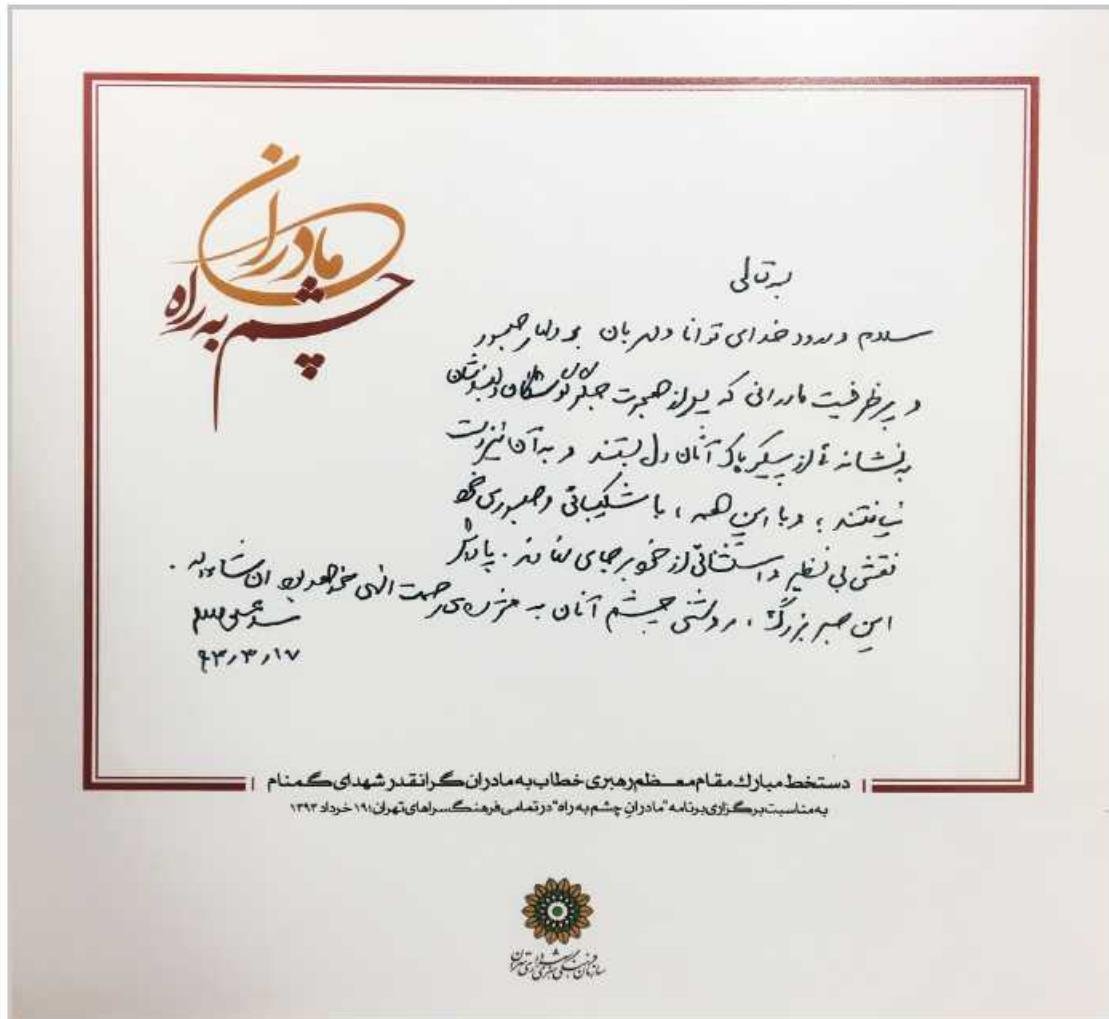 مادران
چشم به راه
بسمه تعالی
سلام و درود خدای توانا و مهربان بر دلهای صبور
و پرظرفیت مادرانی که پس از هجرت جگرگوشگان دلبندشان
به نشانه‌ئی از پیکر پاک آنان دل بستند و به آن نیز دست
نیافتند ؛ و با این همه ، با شکیبائی و صبوری خود
نقشی بی نظیر و استثنائی از خود بر جای نهادند . پاداش
این صبر بزرگ ، روشنی چشم آنان به مژده‌ی رحمت الهی خواهد بود ان شاءالله .
سید علی خامنه‌ای
۹۳٫۳٫۱۷
دستخط مبارک مقام معظم رهبری خطاب به مادران گرانقدر شهدای گمنام
به مناسبت برگزاری برنامه "مادران چشم به راه" در تمامی فرهنگسراهای تهران؛ ۱۹ خرداد ۱۳۹۳
سازمان فرهنگی هنری شهرداری تهران